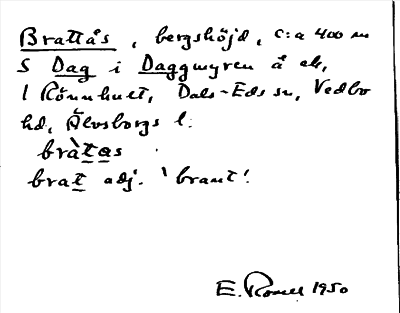 Brattås, bergshöjd, c:a 400 m
S Dag i Daggmyren å ek,
1 Rönnhult, Dals-Eds sn, Vedbo
hd, Älvsborgs l.
bràtas
brat adj. 'brant'.
E. Romell 1950